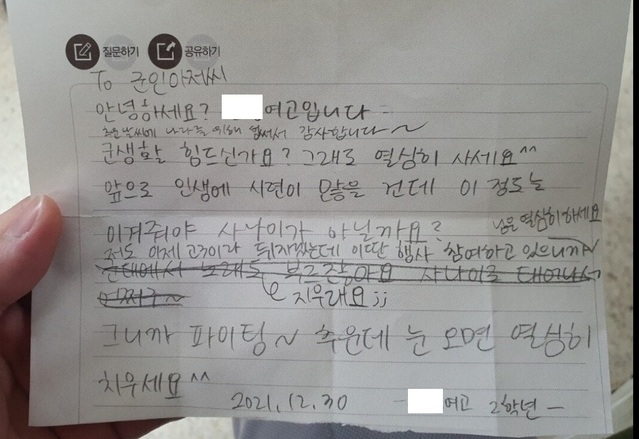 질문하기 공유하기
To 군인아저씨
안녕하세요? 여고입니다
추운 날씨에 나라를 위해 힘써서 감사합니다~
군생활 힘드신가요? 그래도 열심히 사세요^^
앞으로 인생에 시련이 많을 건데 이 정도는
이겨줘야 사나이가 아닐까요?
님은 열심히 하세요
저도 이제 고3이라 뒤지겠는데 이딴 행사 참여하고 있으니까
군대에서 노래도 부르잖아요 사나이로 태어나서
어쩌구~
지우래요;;
그니까 파이팅~ 추운데 눈 오면 열심히
치우세요^^
2021.12.30 - 여고 2학년 -